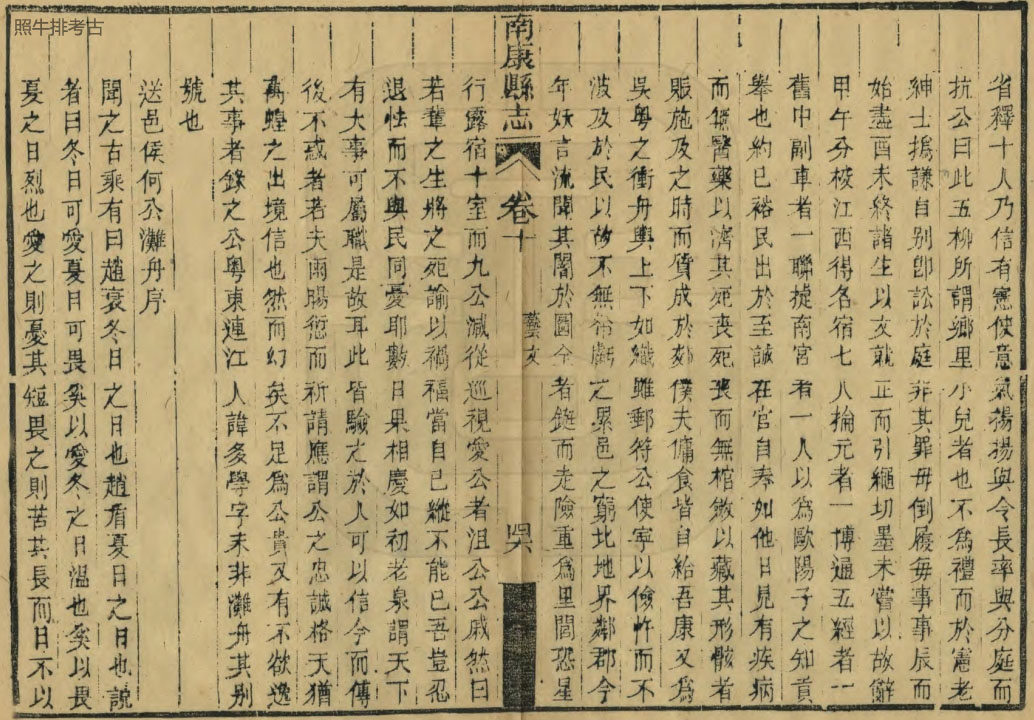 照牛排考古
省釋十人乃信有憲使意氣揚揚與令長率與分庭而
抗公曰此五柳所謂鄉里小兒者也不爲禮而於憲老
紳士撝謙自别卽訟於庭非其罪毋倒履毎事事辰而
始盡酉未終諸生以文就正而引繩切墨未嘗以故辭
甲午分校江西得名宿七人掄元者一博通五經者一
舊中副車者一聯捷南宮者一人以爲歐陽子之知貢
舉也約已裕民出於至誠在官自奉如他日見有疾病
而無醫藥以濟其死喪死喪而無棺斂以藏其形骸者
賑施及之時而貨成於郊僕夫傭食皆自給吾康又爲
吳粤之衝舟輿上下如織雖郵符公使寜以儉忤而不
波及於民以故不無之累邑之窮北地界鄰郡今
年妖言流聞其閽於圖全者鋌而走險重爲里閭恐星
南康縣志
卷十
藝文
吴
行露宿十室而九公減從巡視愛公者沮公公戚然曰
若輩之生將之死諭以禍福當自已縱不能已吾豈忍
退怯而不與民同憂耶數日果相慶如初老泉謂天下
有大事可屬職是故耳此皆驗之於人可以信今而傳
後不惑者若夫雨暘愆而祈請應謂公之忠誠格天猶
萬蝗之出境信也然而幻矣不足爲公貴又有不欲逸
其事者錄之公粤東連江人諱多學字未非灘舟其别
號也
送邑侯何公灘舟序
聞之古乘有曰趙衰冬日之日也趙盾夏日之日也說
者曰冬日可愛夏日可畏矣以愛冬之日溫也矣以畏
夏之日烈也愛之則憂其短畏之則苦其長而日不以